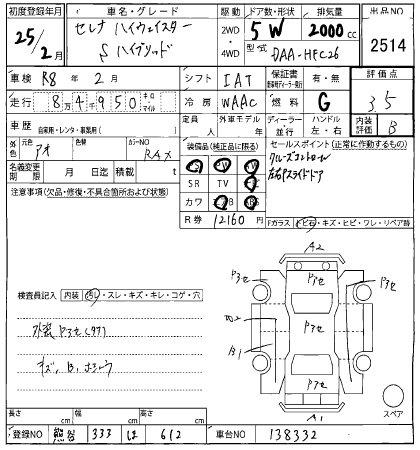 初度登録年月 車名・グレード 駆動 ドア数・形状 排気量 出品NO
25/2月 セレナ ハイウェイスター 2WD・4WD 5W 2000cc 2514
Sハイブリッド 型式 DAA-HFC26
車検 R8年2月 シフト IAT 保証書 有・無 評価点
走行 8万4千950 キロ・マイル 冷房 WAAC 燃料 G 3.5
車歴 自家用・レンタ・事業用( ) 定員 人 外車モデル 年 ディーラー・並行 ハンドル 左・右 内装評価 B
外色 元色 アオ 色替 カラーNO RAX 装備品(純正品に限る) セールスポイント(正常に作動するもの)
名義変更期限 月 日迄 積載 t PS PW クルーズコントロール
注意事項(欠品・修復・不具合箇所および状態) SR TV 左右Pスライドドア
カワ
R券 12160円 Fガラス トビ石・キズ・ヒビ・ワレ・リペア跡
A2
検査員記入 内装 汚レ・スレ・キズ・キレ・コゲ・穴
B2
B1
キズ、B、
A1
スペア
長さ cm 幅 cm 高さ cm
登録NO 熊谷 333 ほ 612 車台NO 138332